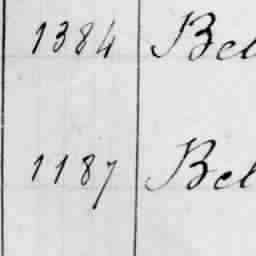 1384 Bel
1187 Bel